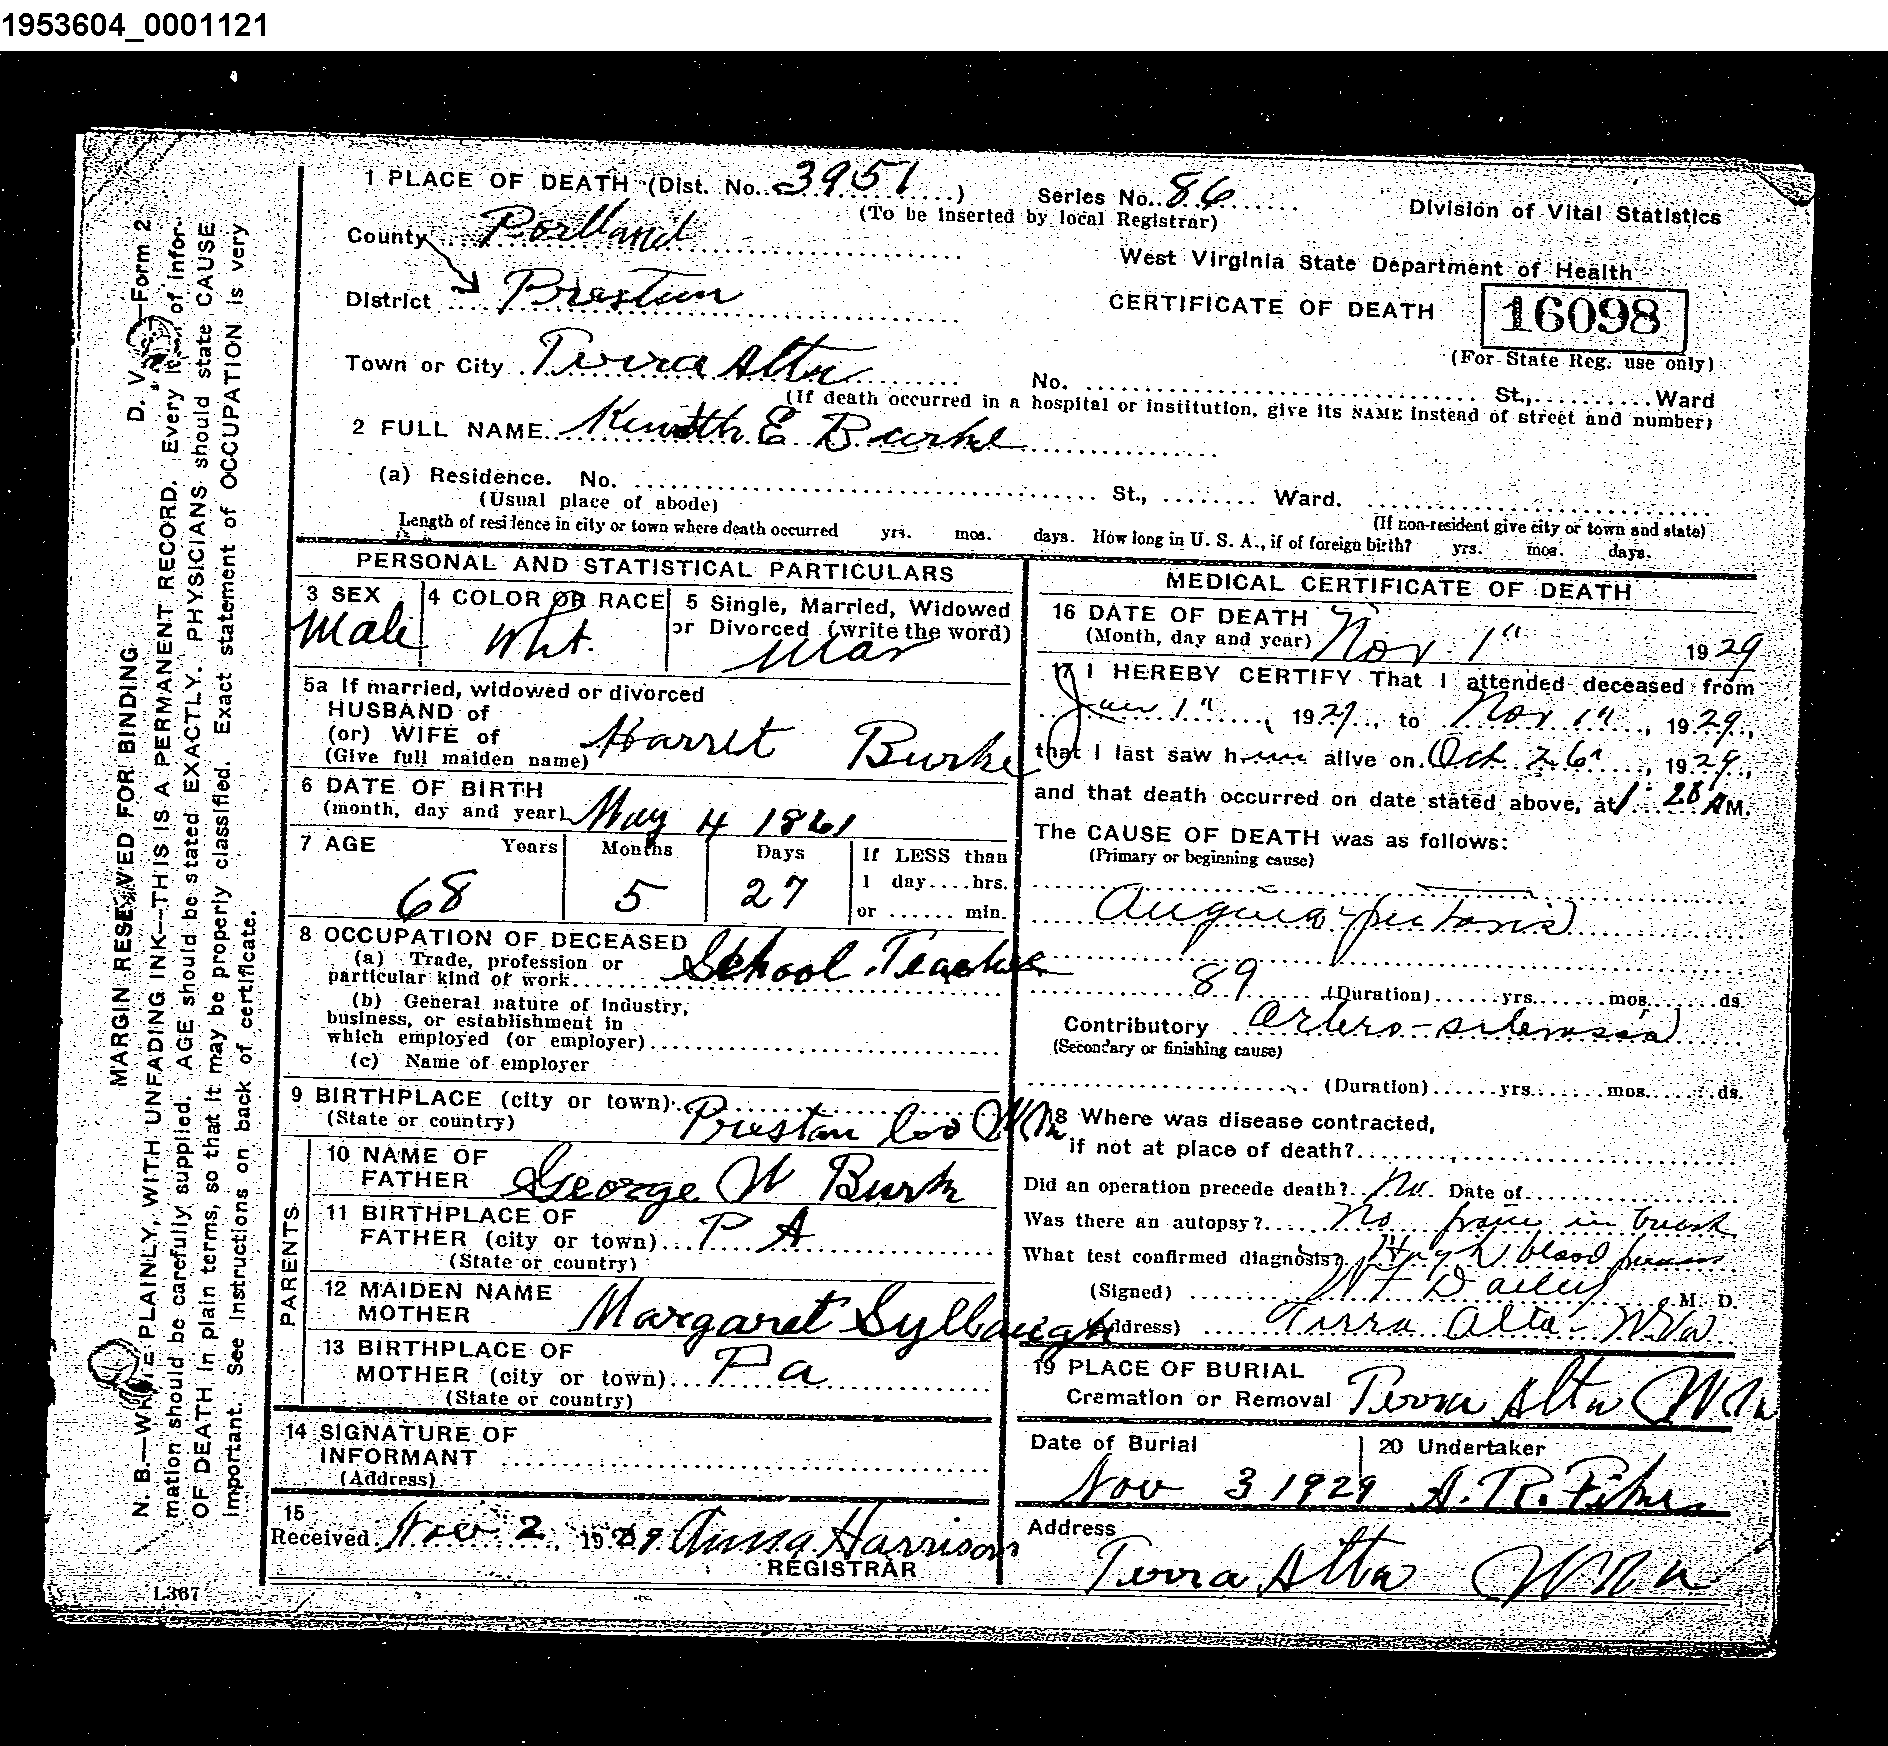 1953604_0001121
1 PLACE OF DEATH (Dist. No. 3951)
Series No. 86
(To be inserted by local Registrar)
Division of Vital Statistics
County Portland
West Virginia State Department of Health
District Preston
CERTIFICATE OF DEATH
16098
(For State Reg. use only)
Town or City Terra Alta
No. St., Ward
(If death occurred in a hospital or institution, give its NAME instead of street and number)
2 FULL NAME Kenneth E Burke
(a) Residence. No. St., Ward.
(Usual place of abode)
(If non-resident give city or town and state)
Length of residence in city or town where death occurred yrs. mos. days. How long in U. S. A., if of foreign birth? yrs. mos. days.
PERSONAL AND STATISTICAL PARTICULARS
3 SEX
Male
4 COLOR OR RACE
Wht.
5 Single, Married, Widowed
or Divorced (write the word)
Mar
5a If married, widowed or divorced
HUSBAND of
(or) WIFE of
(Give full maiden name)
Harret Burke
6 DATE OF BIRTH
(month, day and year) May 4 1861
7 AGE Years Months Days If LESS than
1 day....hrs.
or ...... min.
68 5 27
8 OCCUPATION OF DECEASED
(a) Trade, profession or
particular kind of work School Teacher
(b) General nature of industry,
business, or establishment in
which employed (or employer)
(c) Name of employer
9 BIRTHPLACE (city or town)
(State or country) Preston Co W Va
PARENTS
10 NAME OF
FATHER George W Burk
11 BIRTHPLACE OF
FATHER (city or town) P A
(State or country)
12 MAIDEN NAME
MOTHER Margaret Sylbaugh
13 BIRTHPLACE OF
MOTHER (city or town) Pa
(State or country)
14 SIGNATURE OF
INFORMANT
(Address)
15
Received Nov 2, 1929 Anna Harrison
REGISTRAR
MEDICAL CERTIFICATE OF DEATH
16 DATE OF DEATH
(Month, day and year) Nov. 1" 1929
17 I HEREBY CERTIFY That I attended deceased from
Jan 1", 1929, to Nov 1", 1929,
that I last saw him alive on Oct 26", 1929,
and that death occurred on date stated above, at 1:28 A M.
The CAUSE OF DEATH was as follows:
(Primary or beginning cause)
Angina pectoris
89 (Duration) yrs. mos. ds.
Contributory Artero-sclerosis
(Secondary or finishing cause)
(Duration) yrs. mos. ds.
18 Where was disease contracted,
if not at place of death?
Did an operation precede death? No. Date of
Was there an autopsy? No pain in breast
What test confirmed diagnosis? High blood pressure
(Signed) W F Dailey M. D.
(Address) Terra Alta W Va
19 PLACE OF BURIAL
Cremation or Removal Terra Alta W Va
Date of Burial
Nov 3 1929
20 Undertaker
A. R. Fike
Address
Terra Alta W Va
MARGIN RESERVED FOR BINDING
D. V. S.—Form 2
N. B.—WRITE PLAINLY, WITH UNFADING INK—THIS IS A PERMANENT RECORD. Every item of infor-
mation should be carefully supplied. AGE should be stated EXACTLY. PHYSICIANS should state CAUSE
OF DEATH in plain terms, so that it may be properly classified. Exact statement of OCCUPATION is very
important. See instructions on back of certificate.
L367